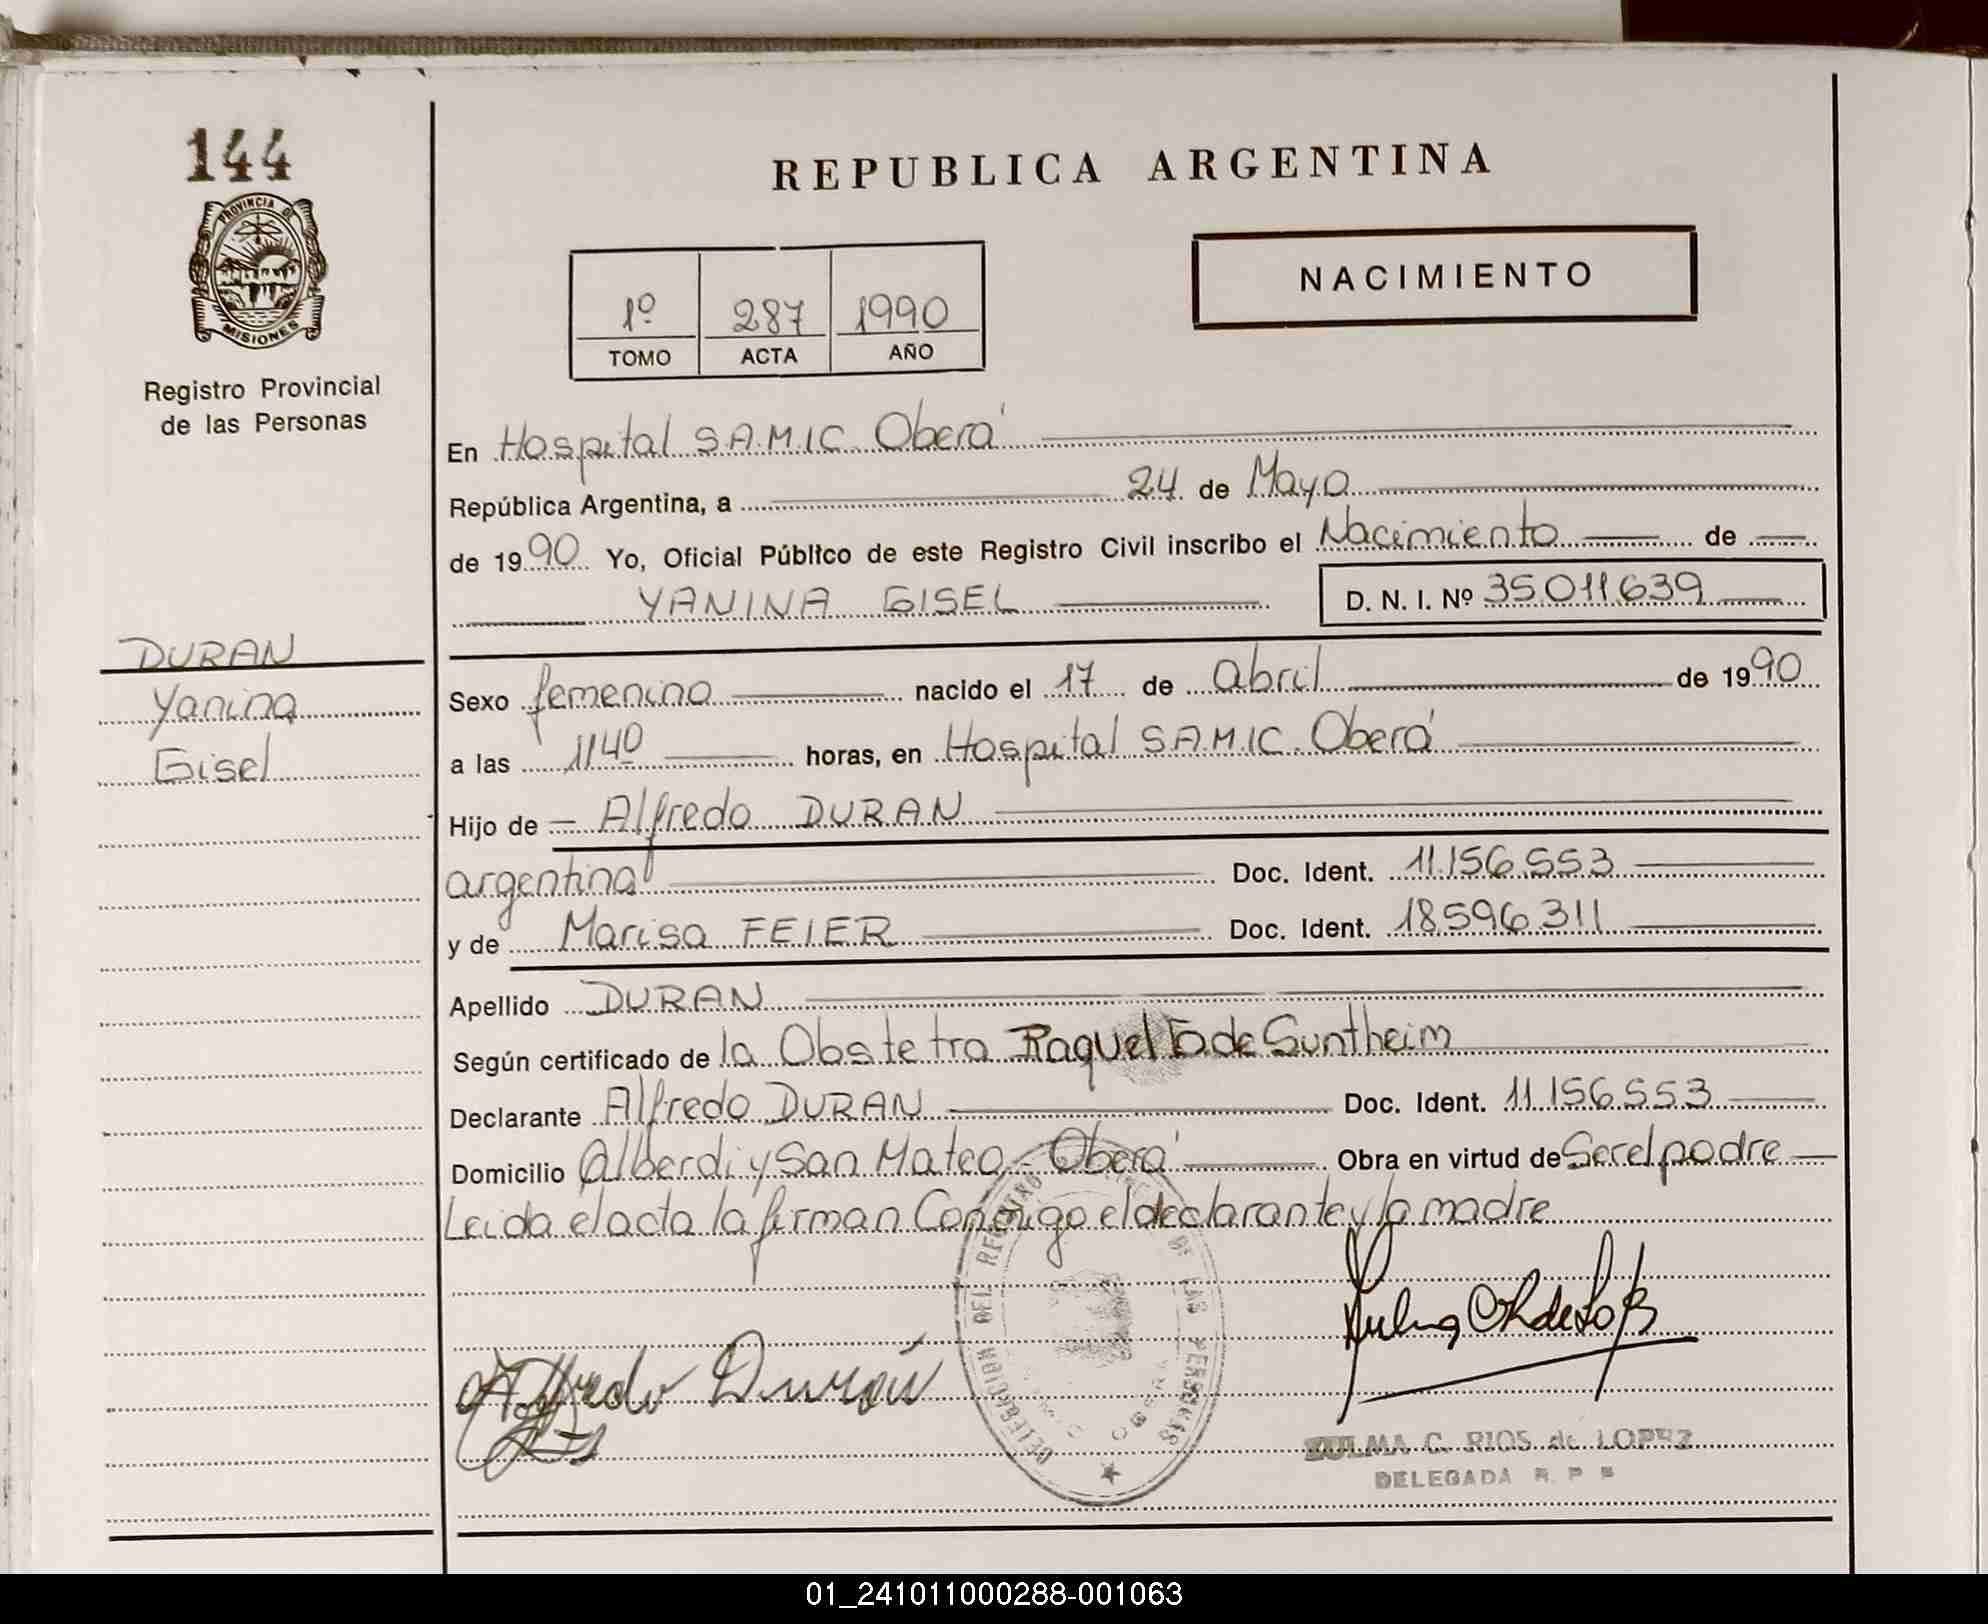 144
PROVINCIA DE
MISIONES
Registro Provincial
de las Personas
DURAN
Yanina
Gisel
REPUBLICA ARGENTINA
NACIMIENTO
1º 287 1990
TOMO ACTA AÑO
En Hospital S.A.M.I.C. Oberá
República Argentina, a 24 de Mayo
de 1990 Yo, Oficial Público de este Registro Civil inscribo el Nacimiento de
YANINA GISEL D. N. I. Nº 35.011.639
Sexo femenino nacido el 17 de abril de 1990
a las 1140 horas, en Hospital S.A.M.I.C. Oberá
Hijo de Alfredo DURAN
argentina Doc. Ident. 11.156.553
y de Marisa FEIER Doc. Ident. 18.596.311
Apellido DURAN
Según certificado de la Obstetra Raquel de Suntheim
Declarante Alfredo DURAN Doc. Ident. 11.156.553
Domicilio Alberdi y San Mateo - Oberá Obra en virtud de Ser el padre
Leida el acta la firman Conmigo el declarante y la madre
DELEGACION DEL REGISTRO DE LAS PERSONAS
OBERA
Alfredo Duran
ZULMA C. RIOS de LOPEZ
DELEGADA R. P. P.
01_241011000288-001063